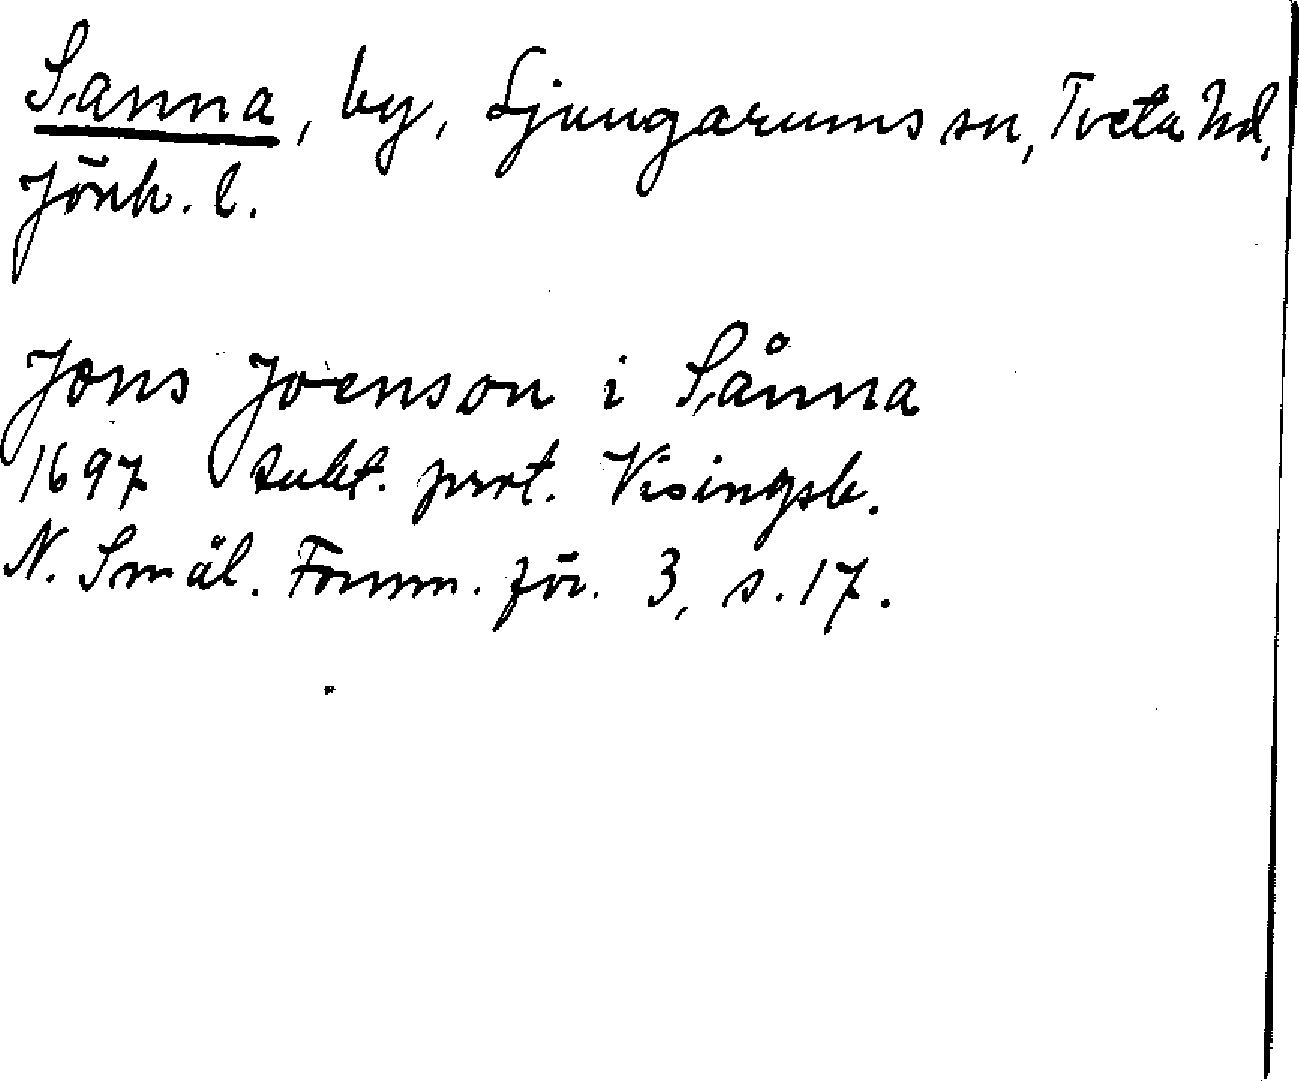 Sanna, by, Ljungarums sn, Tveta hd,
Jönk. l.
Jons Joenson i Sånna
1697 Aukt. prot. Visingsb.
N. Smål. Fornm. för. 3, s. 17.